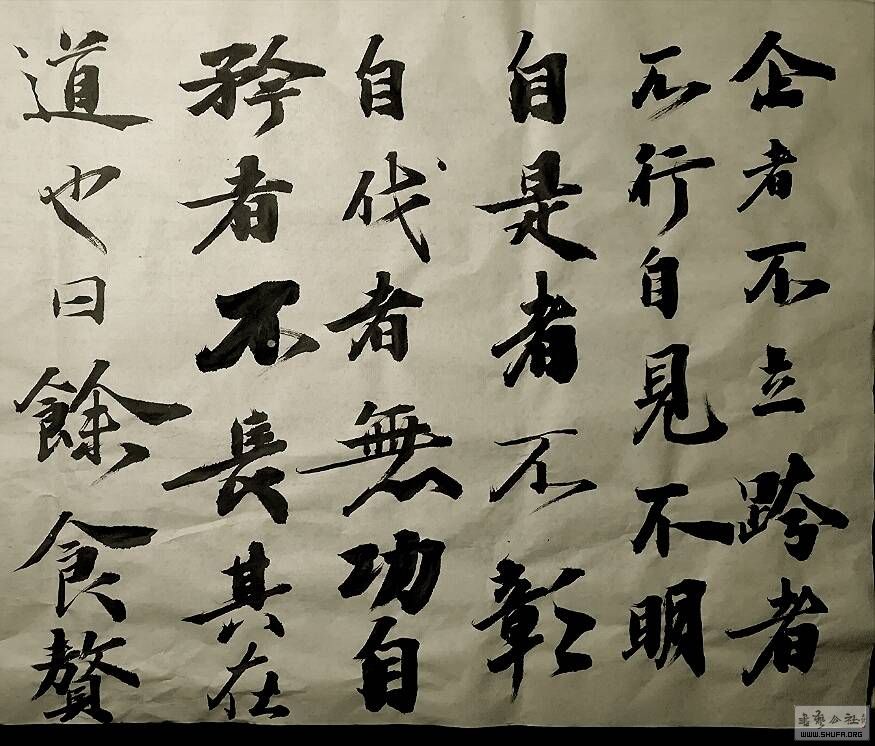 企者不立跨者
不行自見不明
自是者不彰
自伐者無功自
矜者不長其在
道也曰餘食贅
書藝公社
WWW.SHUFA.ORG